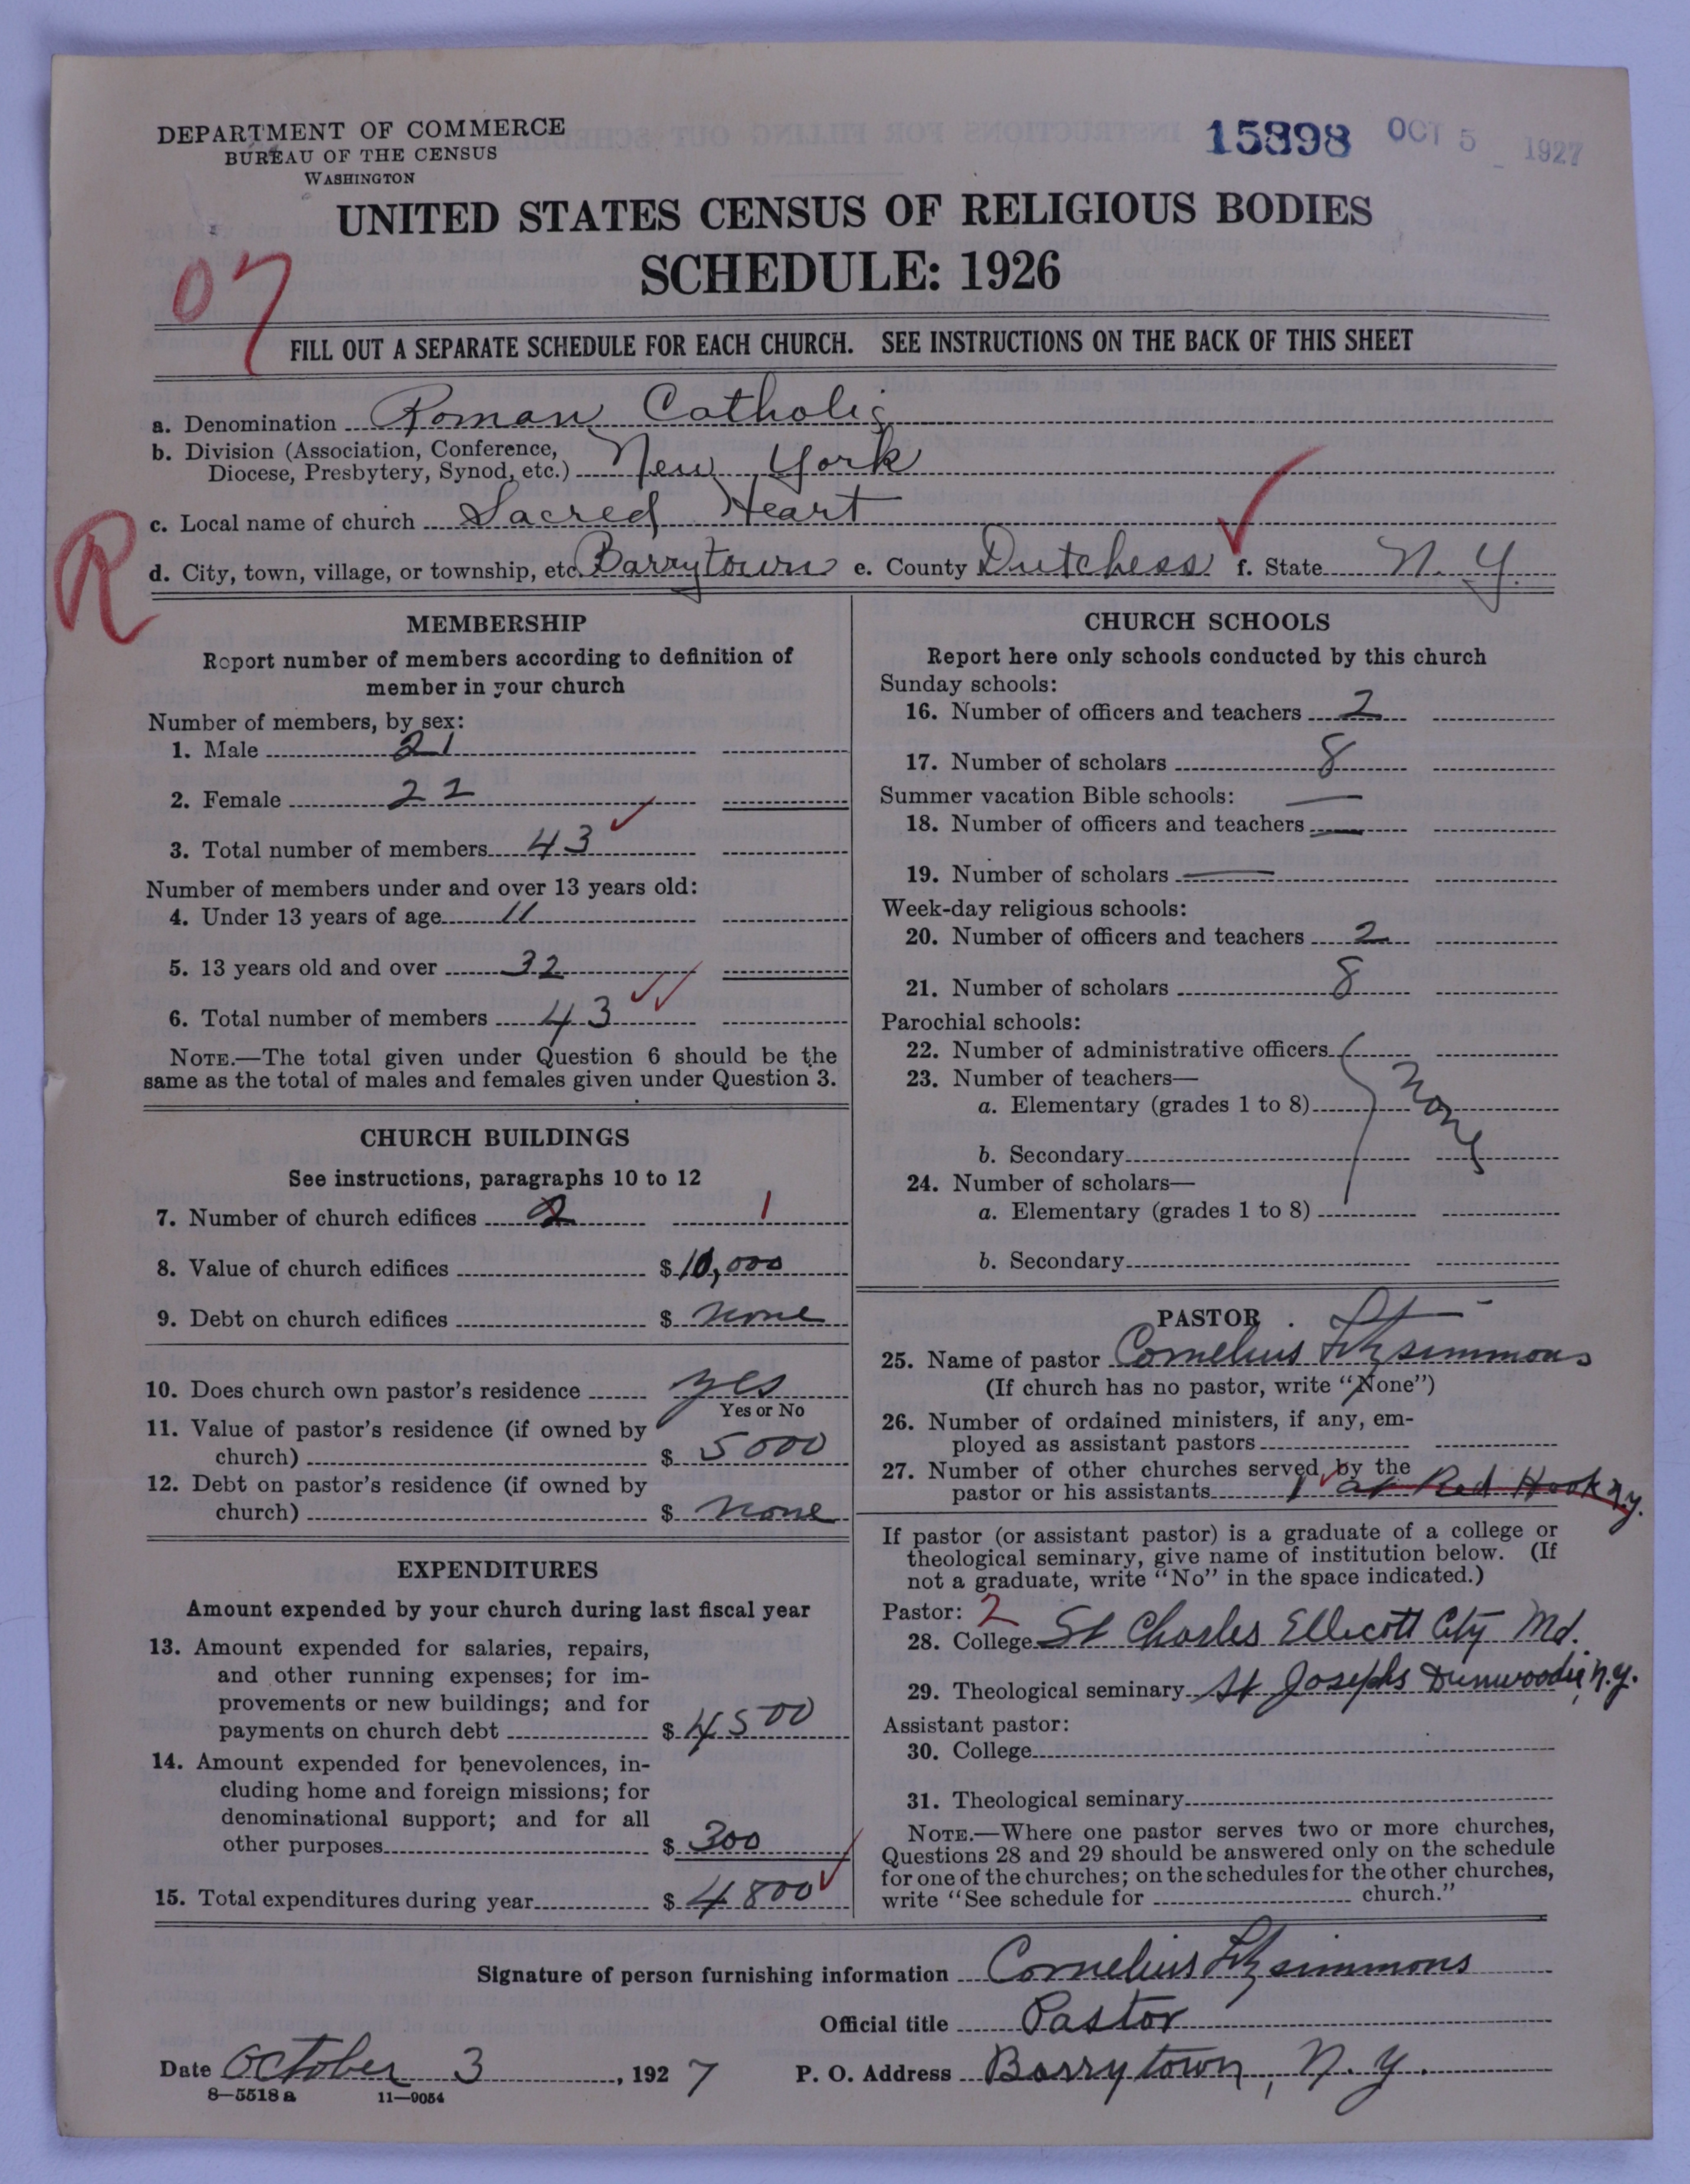 DEPARTMENT OF COMMERCE
BUREAU OF THE CENSUS
WASHINGTON
15898 OCT 5 1927
UNITED STATES CENSUS OF RELIGIOUS BODIES
SCHEDULE: 1926
07
FILL OUT A SEPARATE SCHEDULE FOR EACH CHURCH. SEE INSTRUCTIONS ON THE BACK OF THIS SHEET
a. Denomination Roman Catholic
b. Division (Association, Conference,
Diocese, Presbytery, Synod, etc.) New York
c. Local name of church Sacred Heart
R
d. City, town, village, or township, etc. Barrytown e. County Dutchess f. State N. Y.
MEMBERSHIP
Report number of members according to definition of
member in your church
Number of members, by sex:
1. Male 21
2. Female 22
3. Total number of members 43
Number of members under and over 13 years old:
4. Under 13 years of age 11
5. 13 years old and over 32
6. Total number of members 43
NOTE.—The total given under Question 6 should be the
same as the total of males and females given under Question 3.
CHURCH BUILDINGS
See instructions, paragraphs 10 to 12
7. Number of church edifices 2 1
8. Value of church edifices $ 10,000
9. Debt on church edifices $ none
10. Does church own pastor's residence yes
Yes or No
11. Value of pastor's residence (if owned by
church) $ 5000
12. Debt on pastor's residence (if owned by
church) $ none
EXPENDITURES
Amount expended by your church during last fiscal year
13. Amount expended for salaries, repairs,
and other running expenses; for im-
provements or new buildings; and for
payments on church debt $ 4500
14. Amount expended for benevolences, in-
cluding home and foreign missions; for
denominational support; and for all
other purposes $ 300
15. Total expenditures during year $ 4800
CHURCH SCHOOLS
Report here only schools conducted by this church
Sunday schools:
16. Number of officers and teachers 2
17. Number of scholars 8
Summer vacation Bible schools: —
18. Number of officers and teachers —
19. Number of scholars —
Week-day religious schools:
20. Number of officers and teachers 2
21. Number of scholars 8
Parochial schools:
22. Number of administrative officers
23. Number of teachers—
a. Elementary (grades 1 to 8) none
b. Secondary
24. Number of scholars—
a. Elementary (grades 1 to 8)
b. Secondary
PASTOR
25. Name of pastor Cornelius Fitzsimmons
(If church has no pastor, write "None")
26. Number of ordained ministers, if any, em-
ployed as assistant pastors
27. Number of other churches served by the
pastor or his assistants 1 at Red Hook N.y.
If pastor (or assistant pastor) is a graduate of a college or
theological seminary, give name of institution below. (If
not a graduate, write "No" in the space indicated.)
Pastor: 2
28. College St Charles Ellicott City Md.
29. Theological seminary St Josephs Dunwoodie, n.y.
Assistant pastor:
30. College
31. Theological seminary
NOTE.—Where one pastor serves two or more churches,
Questions 28 and 29 should be answered only on the schedule
for one of the churches; on the schedules for the other churches,
write "See schedule for church."
Signature of person furnishing information Cornelius Fitzsimmons
Official title Pastor
Date October 3, 1927 P. O. Address Barrytown, N. Y.
8—5518a 11—9054